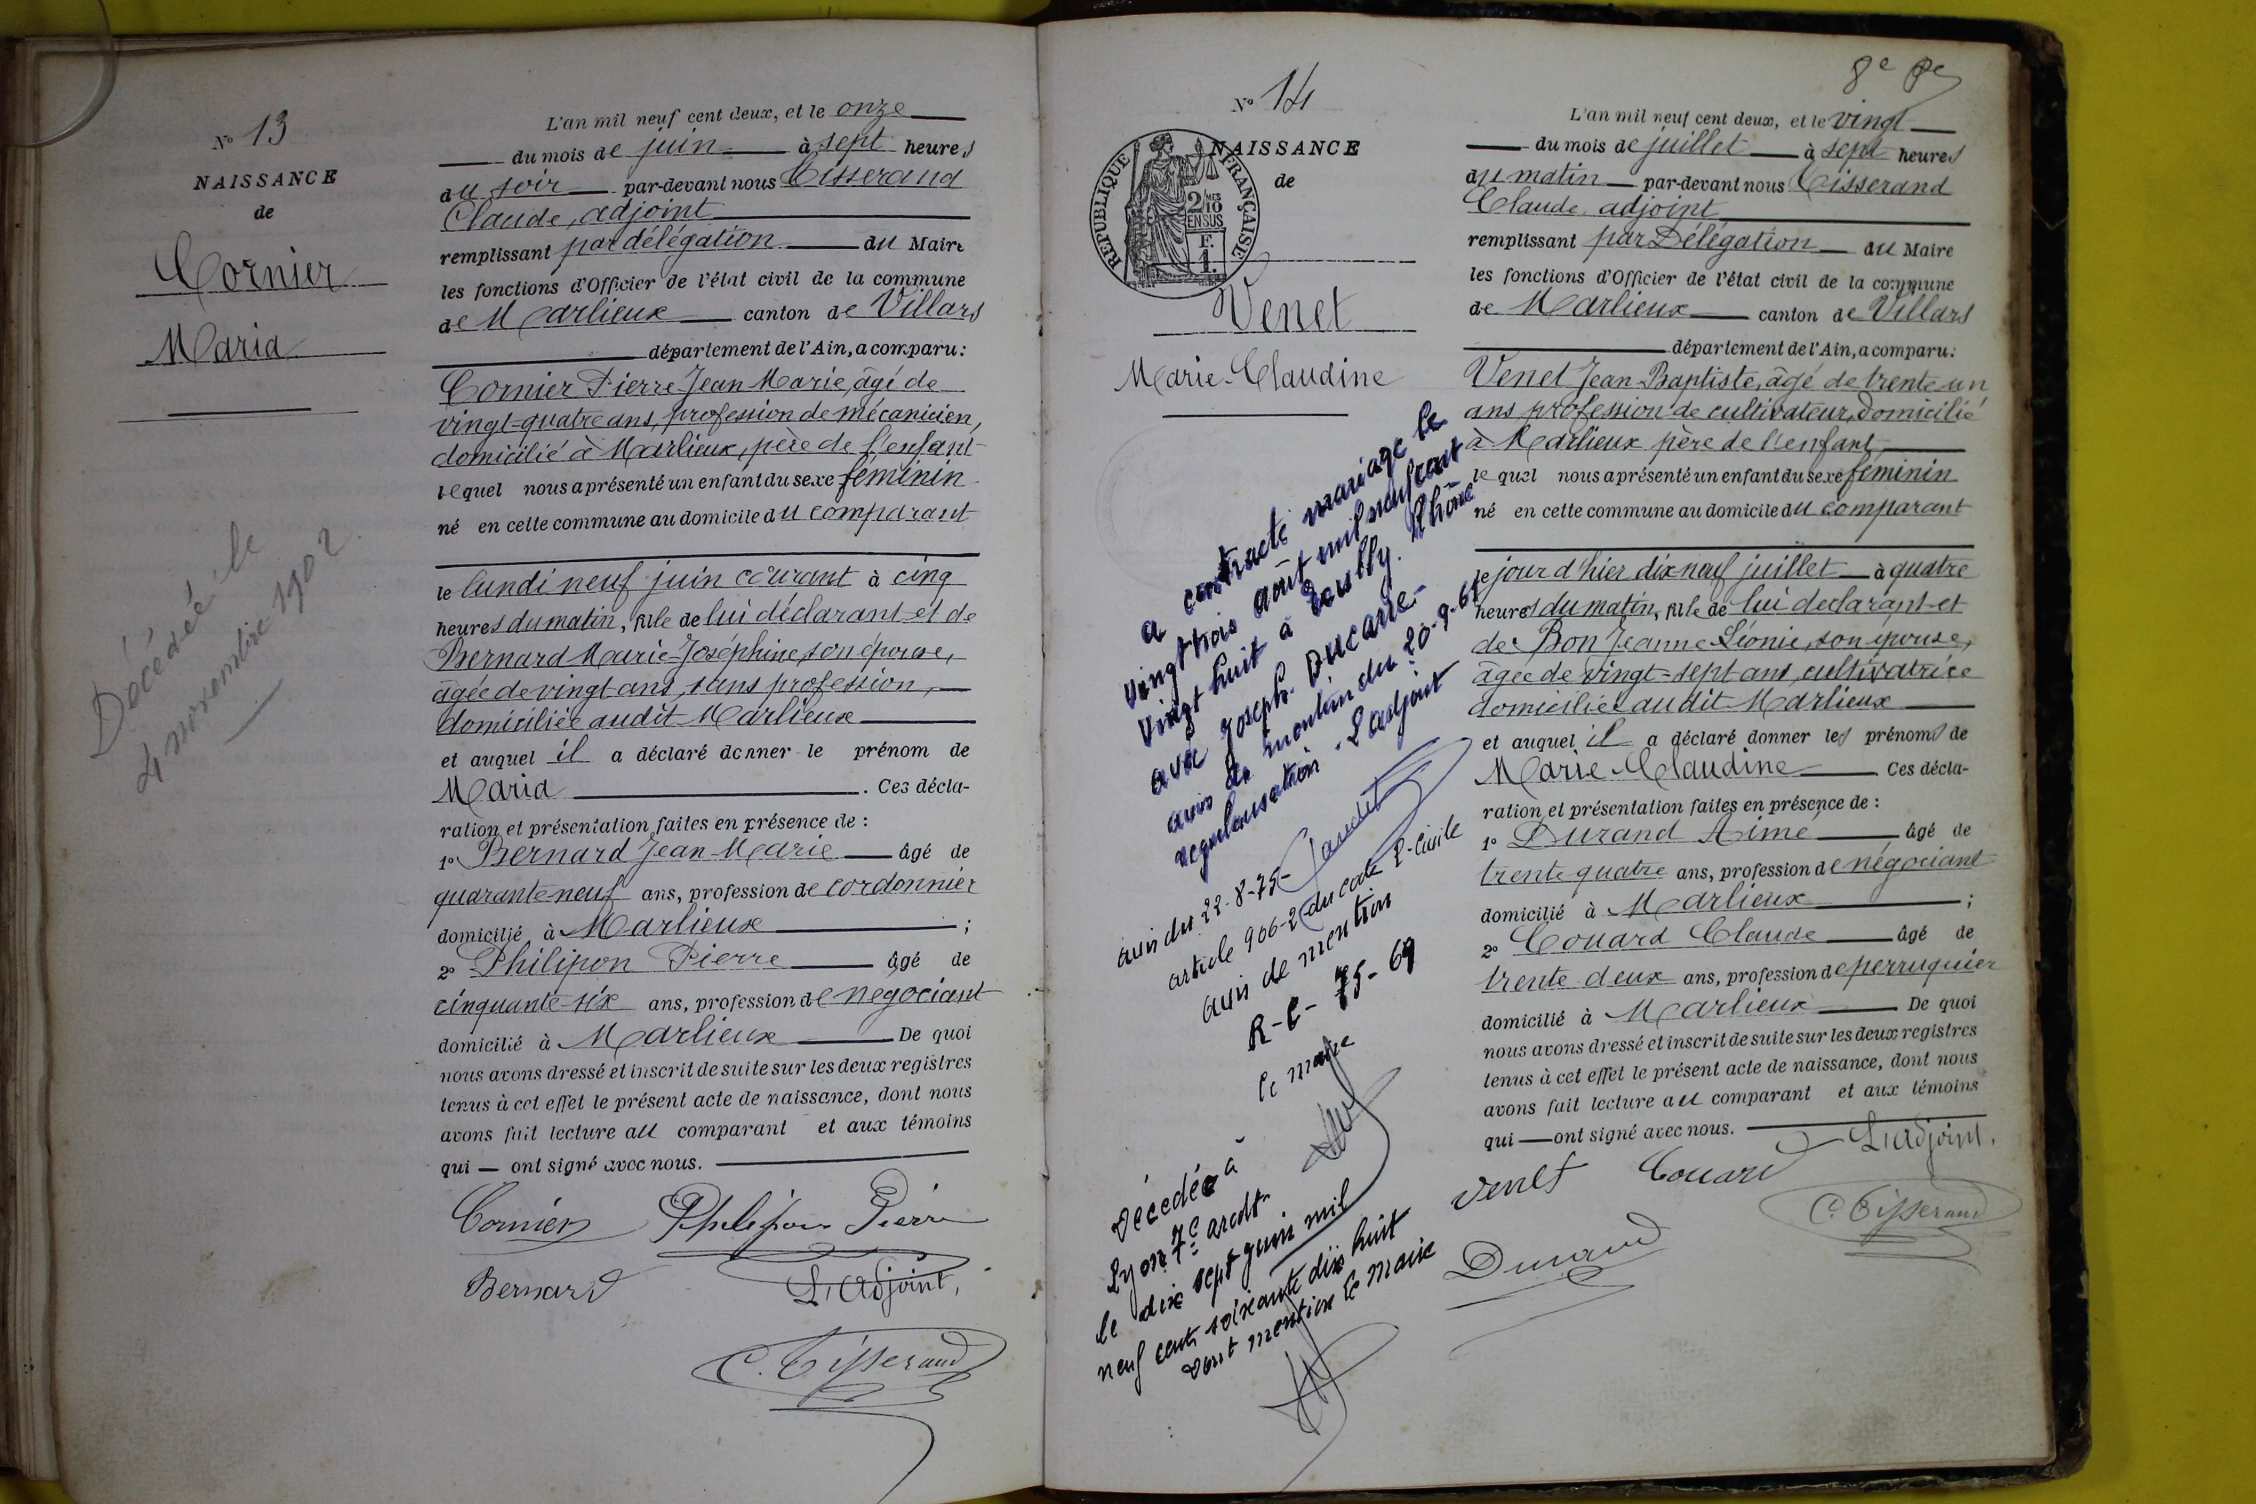 N° 13
NAISSANCE
de
Cornier
Maria
Décédée le
4 novembre 1902
L'an mil neuf cent deux, et le onze
du mois de juin à sept heures
du soir par-devant nous Tisserand
Claude, adjoint
remplissant par délégation du Maire
les fonctions d'Officier de l'état civil de la commune
de Marlieux canton de Villars
département de l'Ain, a comparu:
Cornier Pierre Jean Marie, âgé de
vingt-quatre ans, profession de mécanicien,
domicilié à Marlieux, père de l'enfant
lequel nous a présenté un enfant du sexe féminin
né en cette commune au domicile du comparant
le lundi neuf juin courant à cinq
heures du matin, fille de lui déclarant et de
Bernard Marie-Joséphine, son épouse,
âgée de vingt ans, sans profession,
domiciliée audit Marlieux
et auquel il a déclaré donner le prénom de
Maria. Ces décla-
ration et présentation faites en présence de :
1° Bernard Jean-Marie âgé de
quarante-neuf ans, profession de cordonnier
domicilié à Marlieux ;
2° Philipon Pierre âgé de
cinquante-six ans, profession de négociant
domicilié à Marlieux De quoi
nous avons dressé et inscrit de suite sur les deux registres
tenus à cet effet le présent acte de naissance, dont nous
avons fait lecture au comparant et aux témoins
qui — ont signé avec nous.
Cornier Philipon Pierre
Bernard L'Adjoint,
C. Tisserand
8e
N° 14
NAISSANCE
de
RÉPUBLIQUE FRANÇAISE
2/10
EN SUS
F.
1.
Venet
Marie-Claudine
a contracté mariage le
vingt trois août mil neuf cent
vingt huit à Ecully. Rhône
avec Joseph Ducarre.
avis de mention du 20-9-61
régularisation - L'adjoint
avis du 22-8-75-
article 906-2 du code P-Civile
avis de mention
R-C- 75-69
Le maire
Décédée à
Lyon 7e arrdt
le dix sept juin mil
neuf cent soixante dix huit
dont mention le Maire
L'an mil neuf cent deux, et le vingt
du mois de juillet à sept heures
du matin par-devant nous Tisserand
Claude, adjoint
remplissant par Délégation du Maire
les fonctions d'Officier de l'état civil de la commune
de Marlieux canton de Villars
département de l'Ain, a comparu:
Venet Jean-Baptiste, âgé de trente un
ans profession de cultivateur, domicilié
à Marlieux père de l'enfant
lequel nous a présenté un enfant du sexe féminin
né en cette commune au domicile du comparant
le jour d'hier dix neuf juillet à quatre
heures du matin, fille de lui déclarant et
de Bon Jeanne Léonie, son épouse,
âgée de vingt-sept ans, cultivatrice
domiciliée audit Marlieux
et auquel il a déclaré donner les prénoms de
Marie-Claudine Ces décla-
ration et présentation faites en présence de :
1° Durand Aimé âgé de
trente quatre ans, profession de négociant
domicilié à Marlieux ;
2° Couard Claude âgé de
trente deux ans, profession de perruquier
domicilié à Marlieux De quoi
nous avons dressé et inscrit de suite sur les deux registres
tenus à cet effet le présent acte de naissance, dont nous
avons fait lecture au comparant et aux témoins
qui — ont signé avec nous.
L'Adjoint.
Venet Couard
C. Tisserand
Durand